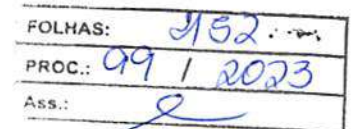 FOLHAS: 2152
PROC.: 99 / 2023
Ass.: